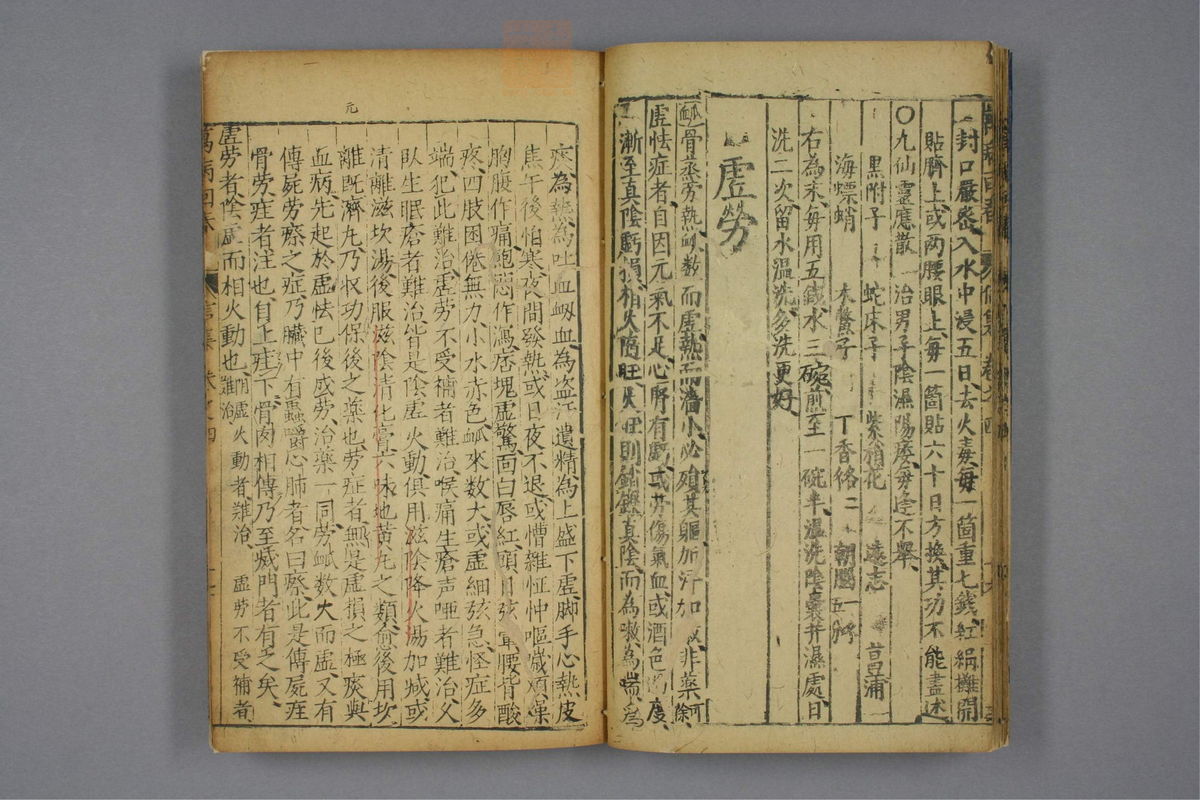 封口嚴密入水中浸五日去火毒每一箇重七錢紅絹攤開
貼臍上或兩腰眼上每一箇貼六十日方換其功不能盡述
〇九仙靈應散 治男子陰濕陽痿每逢不舉
黑附子 蛇床子 紫稍花 遠志 菖蒲
海螵蛸 木鱉子 丁香各二 朝腦一
右為末每用五錢水三碗煎至一碗半溫洗陰囊并濕處日
洗二次留水溫洗多洗更好
虛勞
脉骨蒸勞熱脉數而虛熱而濇小必殞其軀加汗加 非藥可除
虛怯症者自因元氣不足心腎有虧或勞傷氣血或酒色 度
漸至真陰虧損相火 旺火旺則銷鑠真陰而為嗽為喘為
痰為熱為吐血衂血為盗汗遺精為上盛下虛脚手心熱皮
焦午後怕寒夜間發熱或日夜不退或嘈雜怔忡嘔噦煩燥
胸腹作痛飽悶作瀉痞塊虛驚面白唇紅頭目眩暈腰背酸
疼四肢困倦無力小水赤色脉來數大或虛細弦急怪症多
端犯此難治虛勞不受補者難治喉痛生瘡声啞者難治久
臥生眠瘡者難治皆是陰虛火動俱用滋陰降火湯加减或
清離滋坎湯後服滋陰清化膏六味地黄丸之類愈後用坎
離既濟丸乃収功保後之藥也勞症者無是虛損之極痰與
血病先起於虛怯已後感勞治藥一同勞脉數大而虛又有
傳屍勞瘵之症乃臟中有蟲嚙心肺者名曰瘵此是傳屍疰
骨勞疰者注也自上疰下骨肉相傳乃至滅門者有之矣
虛勞者陰虛而相火動也 陰虛火動者難治 虛勞不受補者
難治
萬病回春
元